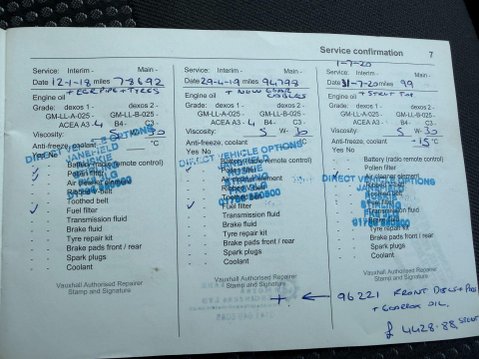 Service confirmation 7
Service: Interim - Main -
Date 12-1-18 miles 78692
+ EGR PIPE + TYRES
Engine oil
Grade: dexos 1 - dexos 2 -
GM-LL-A-025 - GM-LL-B-025 -
ACEA A3 - 4 B4 - C3 -
Viscosity: 5 W- 30
Anti-freeze, coolant °C
Yes No
Battery (remote control)
Pollen filter
Air cleaner element
Toothed belt
Fuel filter
Transmission fluid
Brake fluid
Tyre repair kit
Brake pads front / rear
Spark plugs
Coolant
Vauxhall Authorised Repairer
Stamp and Signature
DIRECT VEHICLE OPTIONS
Service: Interim - Main -
Date 29-4-19 miles 94798
+ NEW EGR COOLER
Engine oil
Grade: dexos 1 - dexos 2 -
GM-LL-A-025 - GM-LL-B-025 -
ACEA A3 - 4 B4 - C3 -
Viscosity: 5 W- 30
Anti-freeze, coolant °C
Yes No
Battery (radio remote control)
Fuel filter
Transmission fluid
Brake fluid
Tyre repair kit
Brake pads front / rear
Spark plugs
Coolant
Vauxhall Authorised Repairer
Stamp and Signature
DIRECT VEHICLE OPTIONS
1-7-20
Service: Interim - Main -
Date 31-7-20 miles 99
+ STRUT TOP
Engine oil
Grade: dexos 1 - dexos 2 -
GM-LL-A-025 - GM-LL-B-025 -
ACEA A3 - B4 - C3 -
Viscosity: 5 W- 30
Anti-freeze, coolant -15 °C
Yes No
Battery (radio remote control)
Pollen filter
Air cleaner element
Fuel filter
Transmission fluid
Brake fluid
Tyre repair kit
Brake pads front / rear
Spark plugs
Coolant
Vauxhall Authorised Repairer
Stamp and Signature
DIRECT VEHICLE OPTIONS
+ ← 96221 FRONT DISCS + PADS
+ GEARBOX OIL.
£ 4428.88